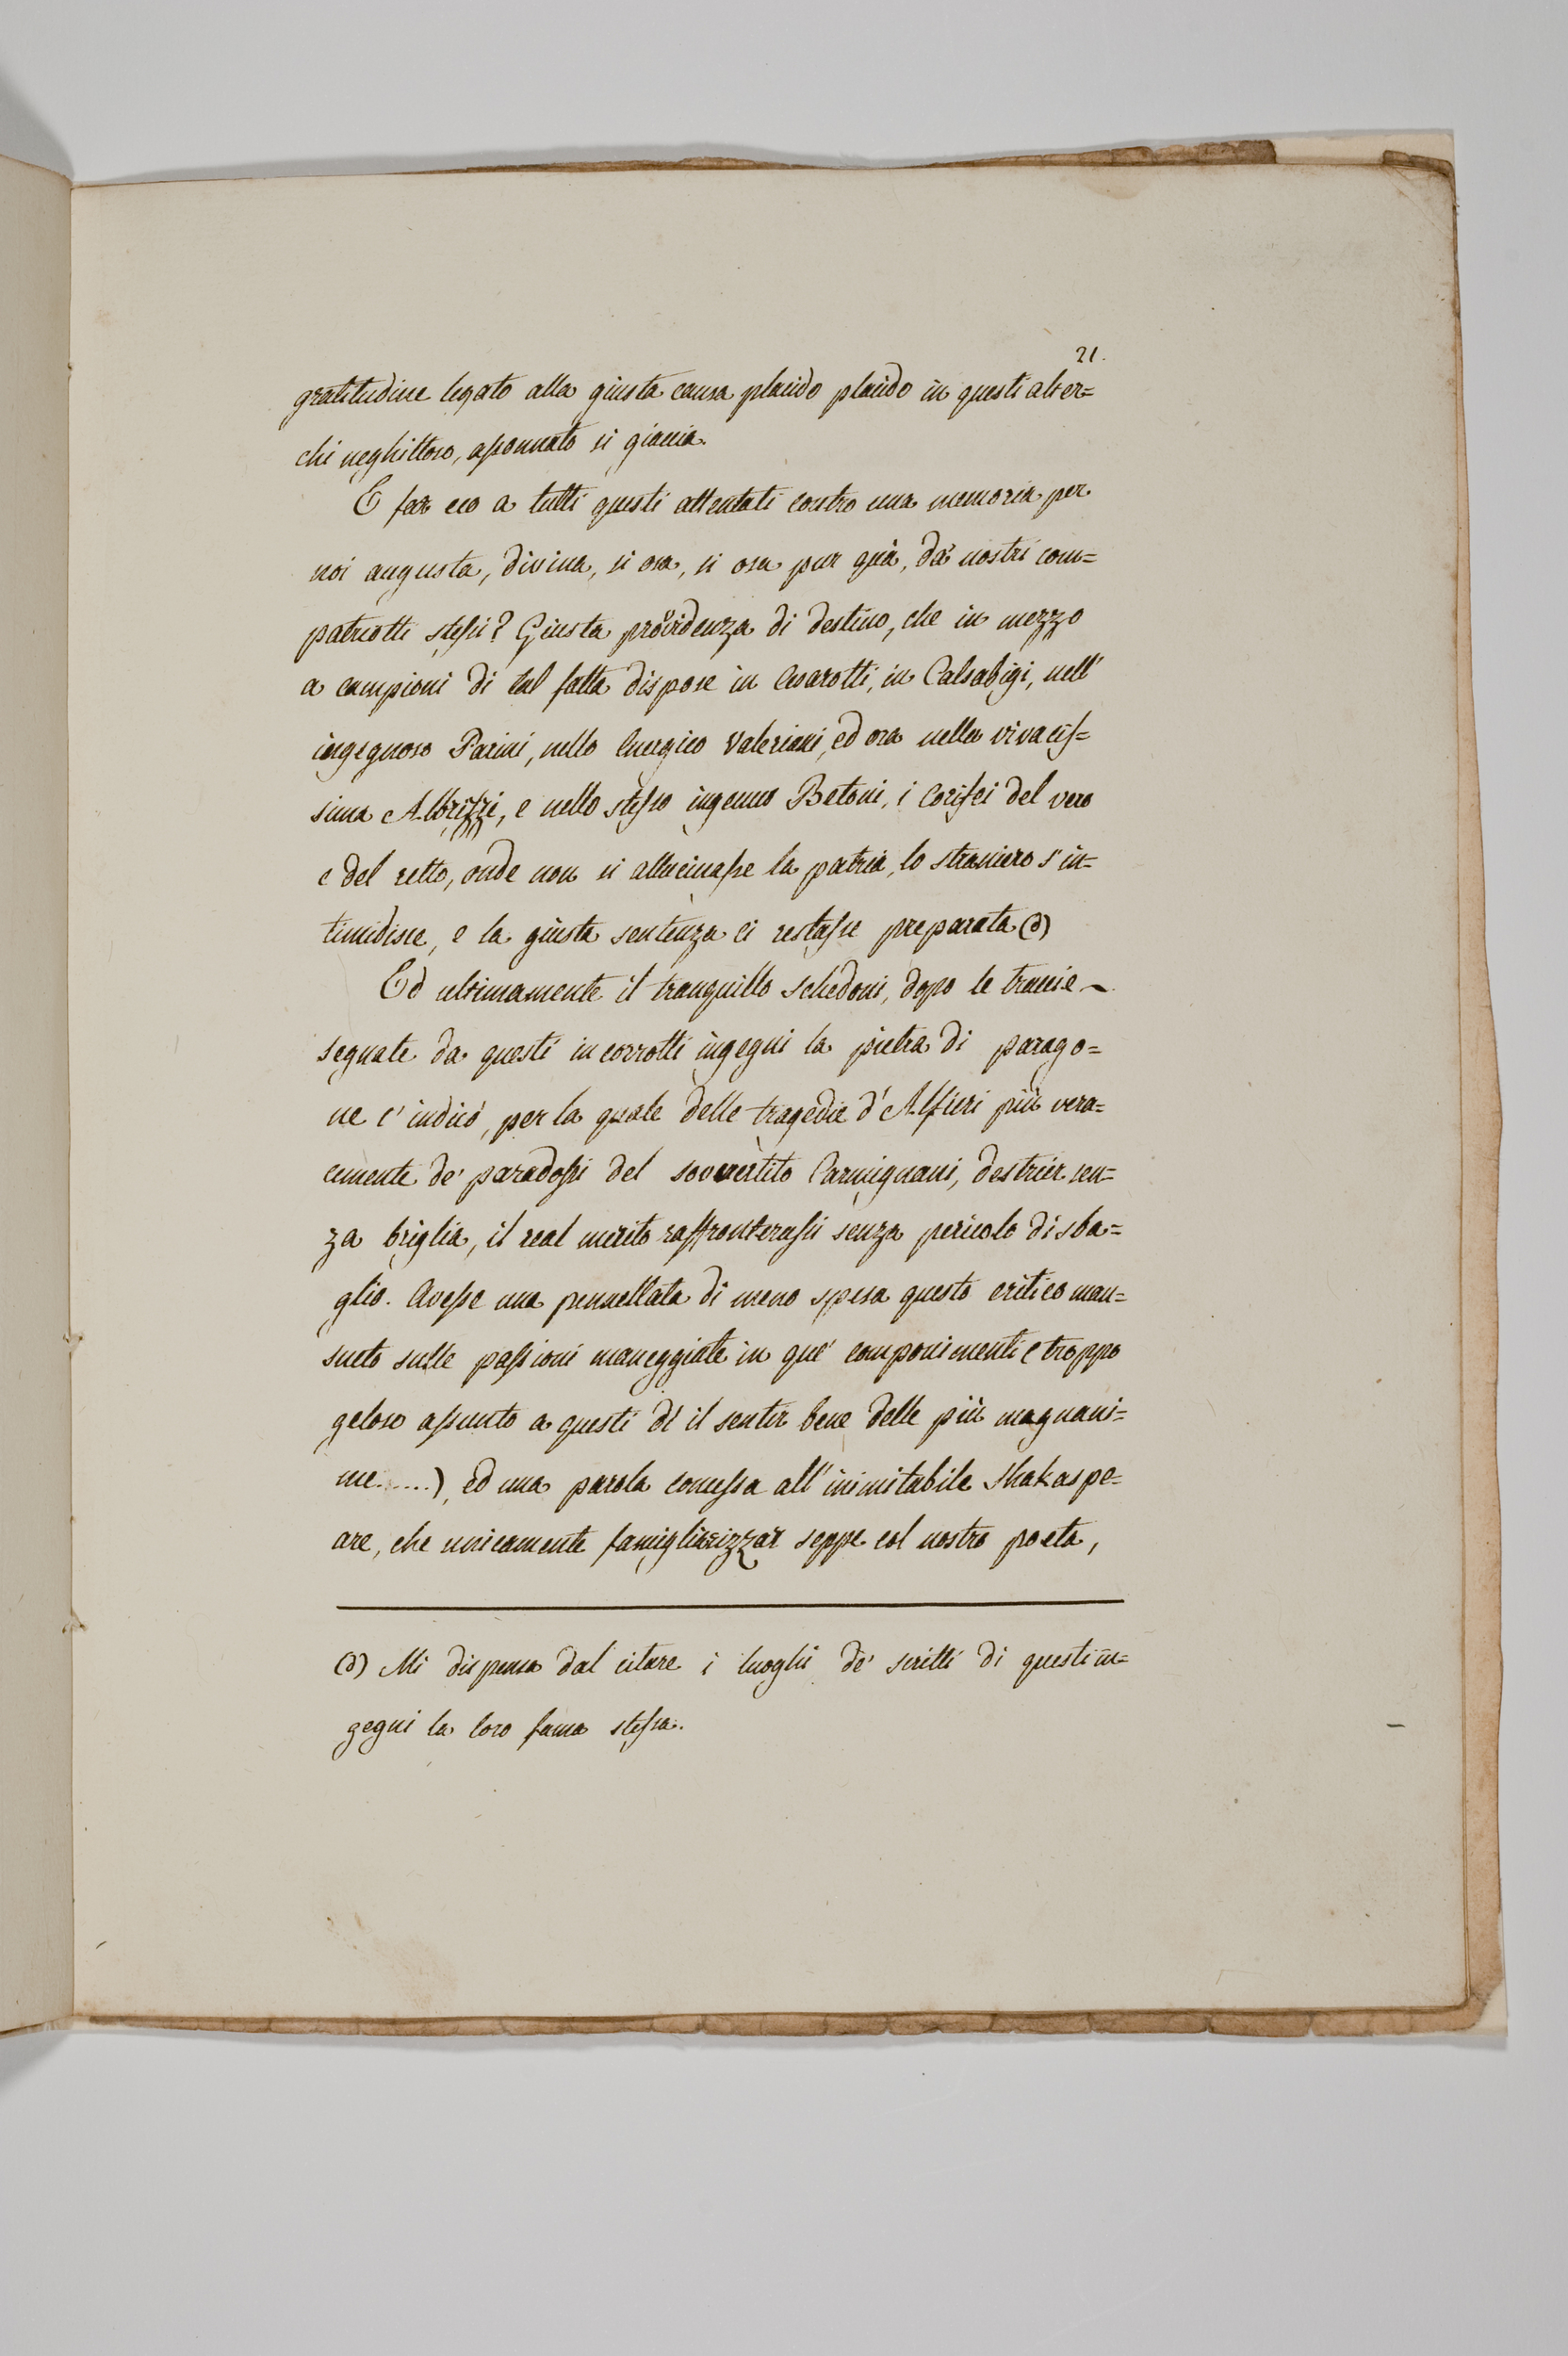 21.
gratitudine legato alla giusta causa placido placido in questi alter=
chi neghittoso, assonnato si giacia.
E far eco a tutti questi attentati contro una memoria per
noi augusta, divina, si osa, si osa pur quà, da' nostri com=
patriotti stessi? Giusta providenza di destino, che in mezzo
a campioni di tal fatta dispose in Cesarotti, in Calsabigi, nell'
ingegnoso Parini, nello Energico Valeriani, ed ora nella vivacis=
sima Albrizzi, e nello stesso ingenuo Betoni, i Corifei del vero
e del retto, onde non si allucinasse la patria, lo straniero s'in=
timidisce, e la giusta sentenza ci restasse preparata (d)
Ed ultimamente il tranquillo Schedoni, dopo le traccie
segnate da questi incorrotti ingegni la pietra di parago=
ne c'indicò, per la quale delle tragedie d'Alfieri più vera=
cemente de' paradossi del sovvertito Carmignani, destrier sen=
za briglia, il real merito raffronterassi senza pericolo di sba=
glio. Avesse una pennellata di meno spesa questo critico man=
sueto sulle passioni maneggiate in que' componimenti (troppo
geloso assunto a questi dì il sentir bene delle più magnani=
me......), ed una parola concessa all'inimitabile Shakaspe=
are, che unicamente famigliarizzar seppe col nostro poeta,
(d) Mi dispensa dal citare i luoghi de' scritti di questi in=
gegni la loro fama stessa.